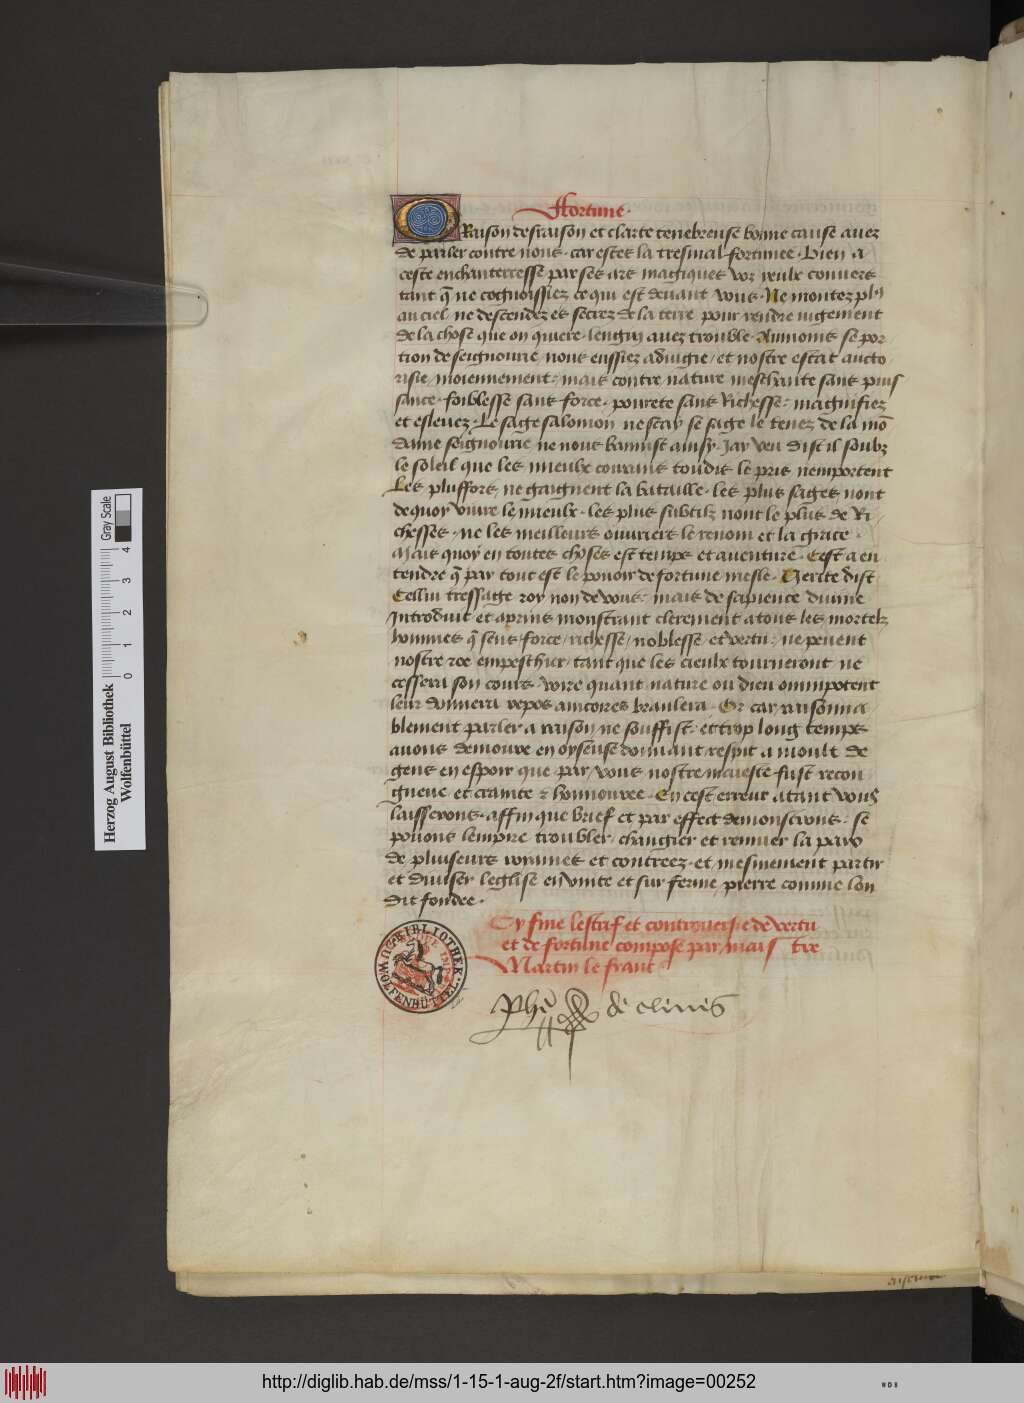 Ffortune.
O Raison desraison et clarte tenebreuse bonne cause avez
de parler contre nous. car estes la tresmal fortunee. Bien a
ceste enchanterresse par ses ars magiques voz yeulx convers
tant q̄ ne cognoissiez ce qui est devant vous. Ne montez pl9
au ciel. ne descendez es secrez de la terre pour rendre iugement
de la chose que on quiere. lengin avez trouble. Aumoins se por
tion de seignourie nous eussiez adiugie. et nostre estat aucto
risie moiennement. mais contre nature meschante sans puis
sance. foiblesse sans force. povrete sans Richesse. magnifiez
et eslevez. Le sage salomon ne scay se sage le tenez de la mō
daine seignourie ne nous bannist ainsy. Jay veu dist il soubz
le soleil que les mieulx courans toudis le pris nemportent
Les plus fors ne gaignent la bataille. les plus sages nont
de quoy vivre le mieulx. les plus subtilz nont le plus de Ri
chesses. ne les meilleurs ouvriers le renom et la grace.
Mais quoy en toutes choses est temps et aventure. Cest a en
tendre q̄ par tout est le povoir de fortune mesle. Verite dist
Cellui tressage roy non de vous. mais de sapience divine
Introduit et aprins monstrant clerement a tous les mortelz
hommes q̄ sens force richesse noblesse et vertu. ne pevent
nostre roe empeschier. tant que les cieulx tourneront ne
cessera son cours. voire quant nature ou dieu omnipotent
leur donnera repos aincoires branlera. Or car raisonna
blement parler a raison ne souffist. et trop long temps
avons demoure en oyseuse donnant respit a moult de
gens en espoir que par vous nostre maieste fust recon
gneue et crainte ⁊ honnouree. En cest erreur atant vous
laisserons. affin que brief et par effect demonstrons. se
povons lempire troubler. changier et remuer la paix
de pluiseurs royaumes et contreez. et mesmement partir
et diviser leglise en unite et sur ferme pierre comme lon
dit fondee.
Cy fine lestrif et controversie de vertu
et de fortune compose par mais tre
Martin le franc
Phē de clevis
BIBLIOTHEK
WOLFENBÜTTEL
Herzog August Bibliothek
Wolfenbüttel
0 1 2 3 4
Gray Scale
http://diglib.hab.de/mss/1-15-1-aug-2f/start.htm?image=00252
WDB